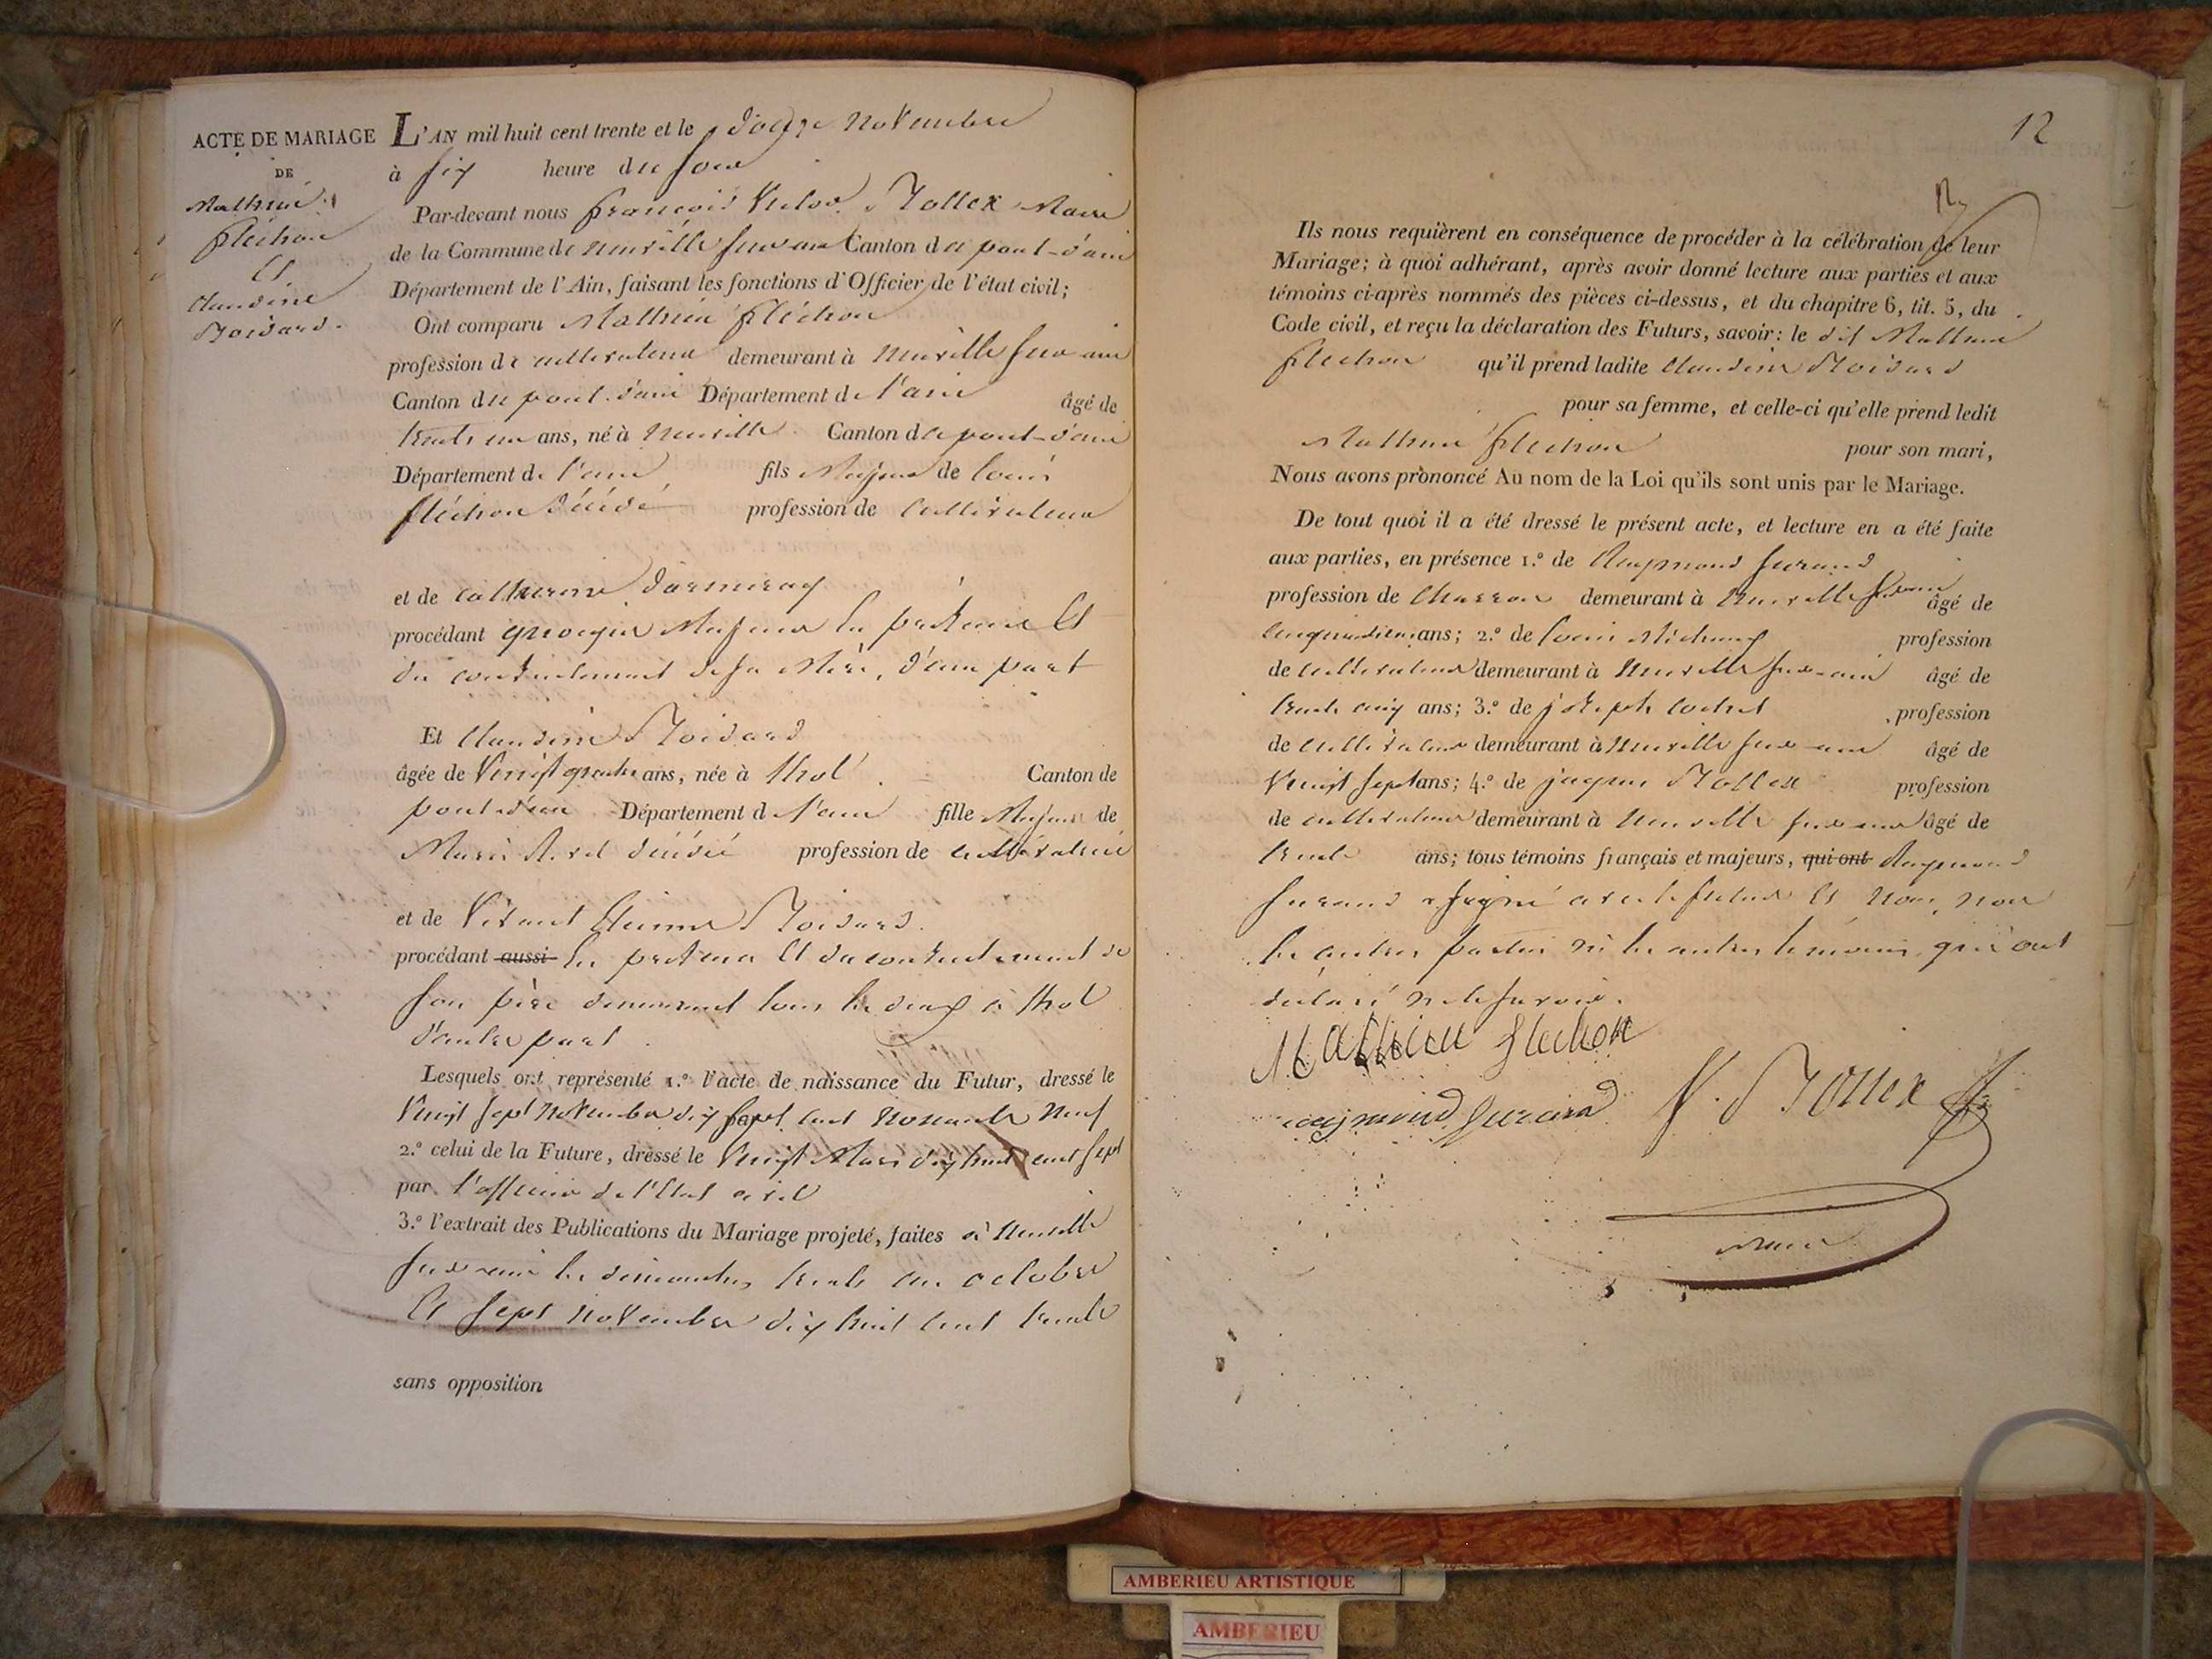 ACTE DE MARIAGE
DE
Mathieu
fléchon
Et
Claudine
Boidard.
L'AN mil huit cent trente et le douze Novembre
à six heure du soir
Par-devant nous françois Victor Bollex Maire
de la Commune de neuville sur ain Canton de pont-d'ain
Département de l'Ain, faisant les fonctions d'Officier de l'état civil;
Ont comparu Mathieu fléchon
profession de cultivateur demeurant à neuville sur ain
Canton de pont-d'ain Département de l'ain âgé de
trente un ans, né à neuville Canton de pont-d'ain
Département de l'ain fils Majeur de louis
fléchon décédé profession de cultivateur
et de catherine
procédant quoique Majeur en présence Et
du consentement de sa Mère, d'une part
Et Claudine Boidard
âgée de Vingt quatre ans, née à thol Canton de
pont d'ain Département de l'ain fille Majeure de
Marie décédée profession de cultivatrice
et de Vivant Boidard.
procédant aussi en présence Et du consentement de
son père demeurant tous les deux à thol
d'autre part
Lesquels ont représenté 1.º l'acte de naissance du Futur, dressé le
Vingt sept Novembre dix sept cent nonante neuf
2.º celui de la Future, dressé le Vingt Mars dix huit cent sept
par l'officier de l'Etat civil
3.º l'extrait des Publications du Mariage projeté, faites à neuville
sur ain les dimanches trente un octobre
Et sept Novembre dix huit cent trente
sans opposition
12
Ils nous requièrent en conséquence de procéder à la célébration de leur
Mariage; à quoi adhérant, après avoir donné lecture aux parties et aux
témoins ci-après nommés des pièces ci-dessus, et du chapitre 6, tit. 5, du
Code civil, et reçu la déclaration des Futurs, savoir: le dit Mathieu
fléchon qu'il prend ladite Claudine Boidard
pour sa femme, et celle-ci qu'elle prend ledit
Mathieu fléchon pour son mari,
Nous avons prononcé Au nom de la Loi qu'ils sont unis par le Mariage.
De tout quoi il a été dressé le présent acte, et lecture en a été faite
aux parties, en présence 1.º de Raymond
profession de Charron demeurant à neuville sur ain âgé de
ans; 2.º de louis profession
de cultivateur demeurant à neuville sur-ain âgé de
trente cinq ans; 3.º de joseph cochet profession
de cultivateur demeurant à neuville sur-ain âgé de
Vingt sept ans; 4.º de jaques Bollex profession
de cultivateur demeurant à neuville sur ain âgé de
trente ans; tous témoins français et majeurs, qui ont Raymond
a signé avec le futur Et nous, non
les autres parties ni les autres témoins qui ont
déclaré ne le savoir.
Mathieu flechon
raymond
V. Bollex
Maire
AMBERIEU ARTISTIQUE
AMBERIEU